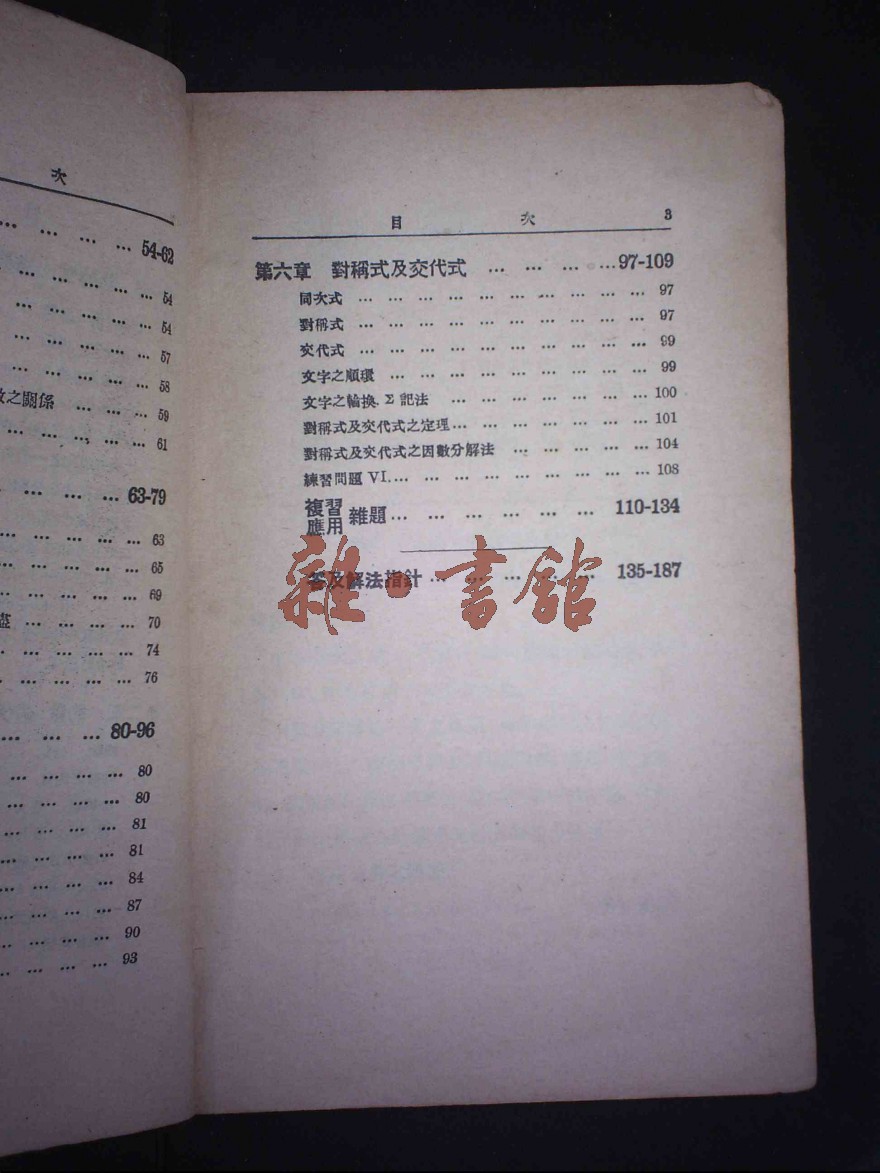 次
… … … … 54-62
… … … … 54
… … … … 54
… … … … 57
… … … … 58
之關係 … … … … 59
… … … … 61
… … … … 63-79
… … … … … 63
… … … … … 65
… … … … … 69
… … … … … 70
… … … … 74
… … … … … 76
… … … … 80-96
… … … … … 80
… … … … … 80
… … … … … 81
… … … … … 81
… … … … … 84
… … … … … 87
… … … … … 90
… … … … … 93
目 次 3
第六章 對稱式及交代式 … … … … 97-109
同次式 … … … … … … … … … … 97
對稱式 … … … … … … … … … … 97
交代式 … … … … … … … … … … 99
文字之順環 … … … … … … … … … 99
文字之輪換. Σ 記法 … … … … … … … 100
對稱式及交代式之定理… … … … … … … 101
對稱式及交代式之因數分解法 … … … … … 104
練習問題 VI.… … … … … … … … … 108
複習
應用 雜題 … … … … … … 110-134
答及解法指針 … … … … … 135-187
雜·書館